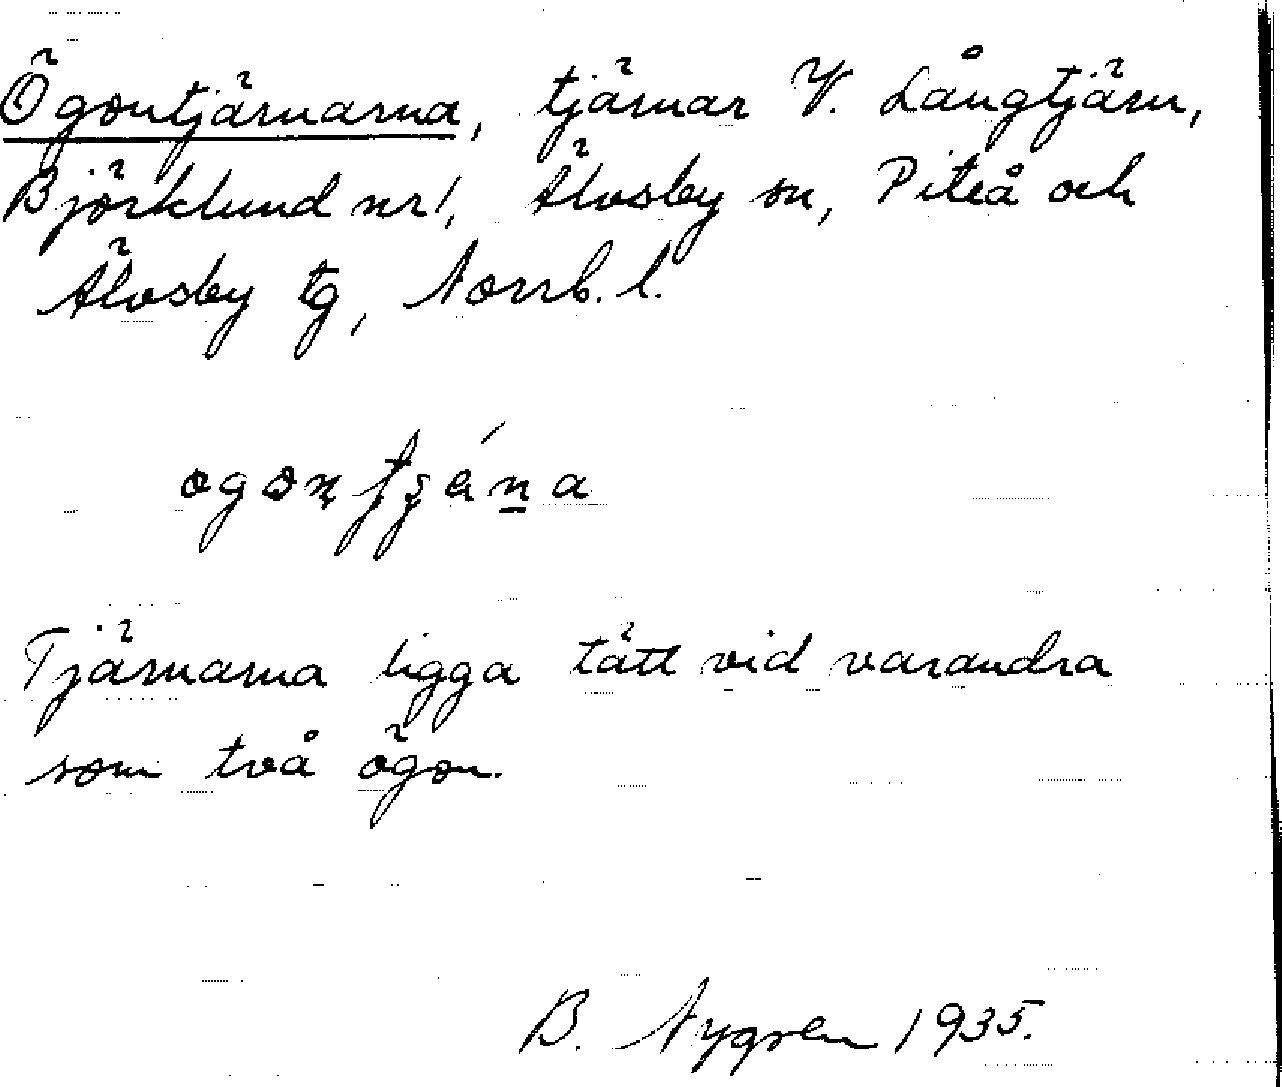 Ögontjärnarna, tjärnar V. Långtjärn,
Björklund nr 1, Älvsby sn, Piteå och
Älvsby tg, Norrb. l.
Tjärnarna ligga tätt vid varandra
som två ögon.
B. Nygren 1935.